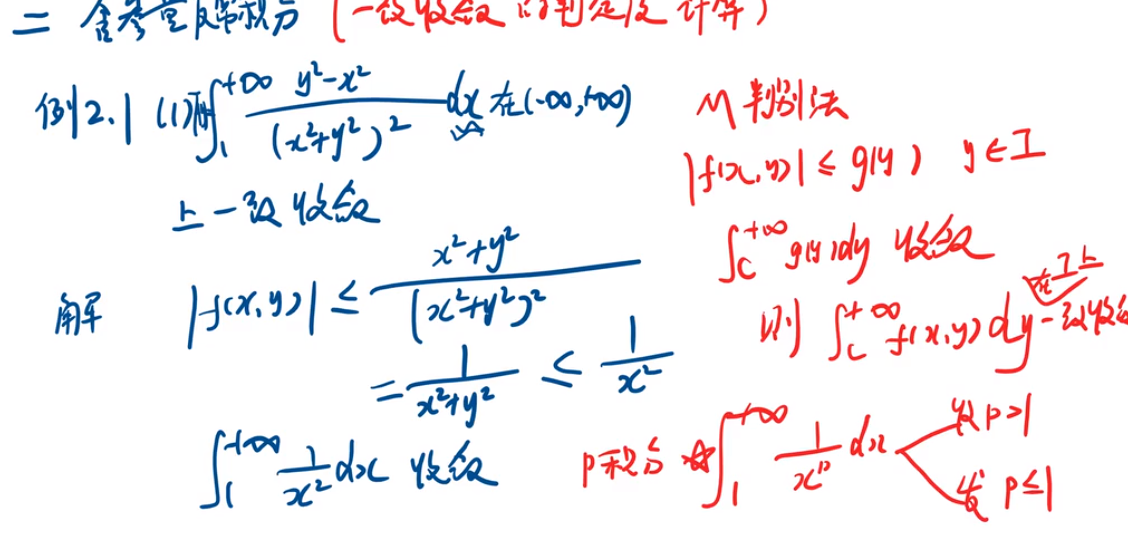 二 含参量反常积分 (一致收敛的判定及计算)
例2.1 (1) 证 ∫₁^{+∞} (y²-x²)/(x²+y²)² dx 在(-∞,+∞)
上一致收敛
解 |f(x,y)| ≤ (x²+y²)/(x²+y²)²
= 1/(x²+y²) ≤ 1/x²
∫₁^{+∞} 1/x² dx 收敛
M判别法
|f(x,y)| ≤ g(y) y∈I
∫_c^{+∞} g(y)dy 收敛
则 ∫_c^{+∞} f(x,y)dy 在I上一致收敛
p积分 ☆ ∫₁^{+∞} 1/x^p dx
收 p>1
发 p≤1